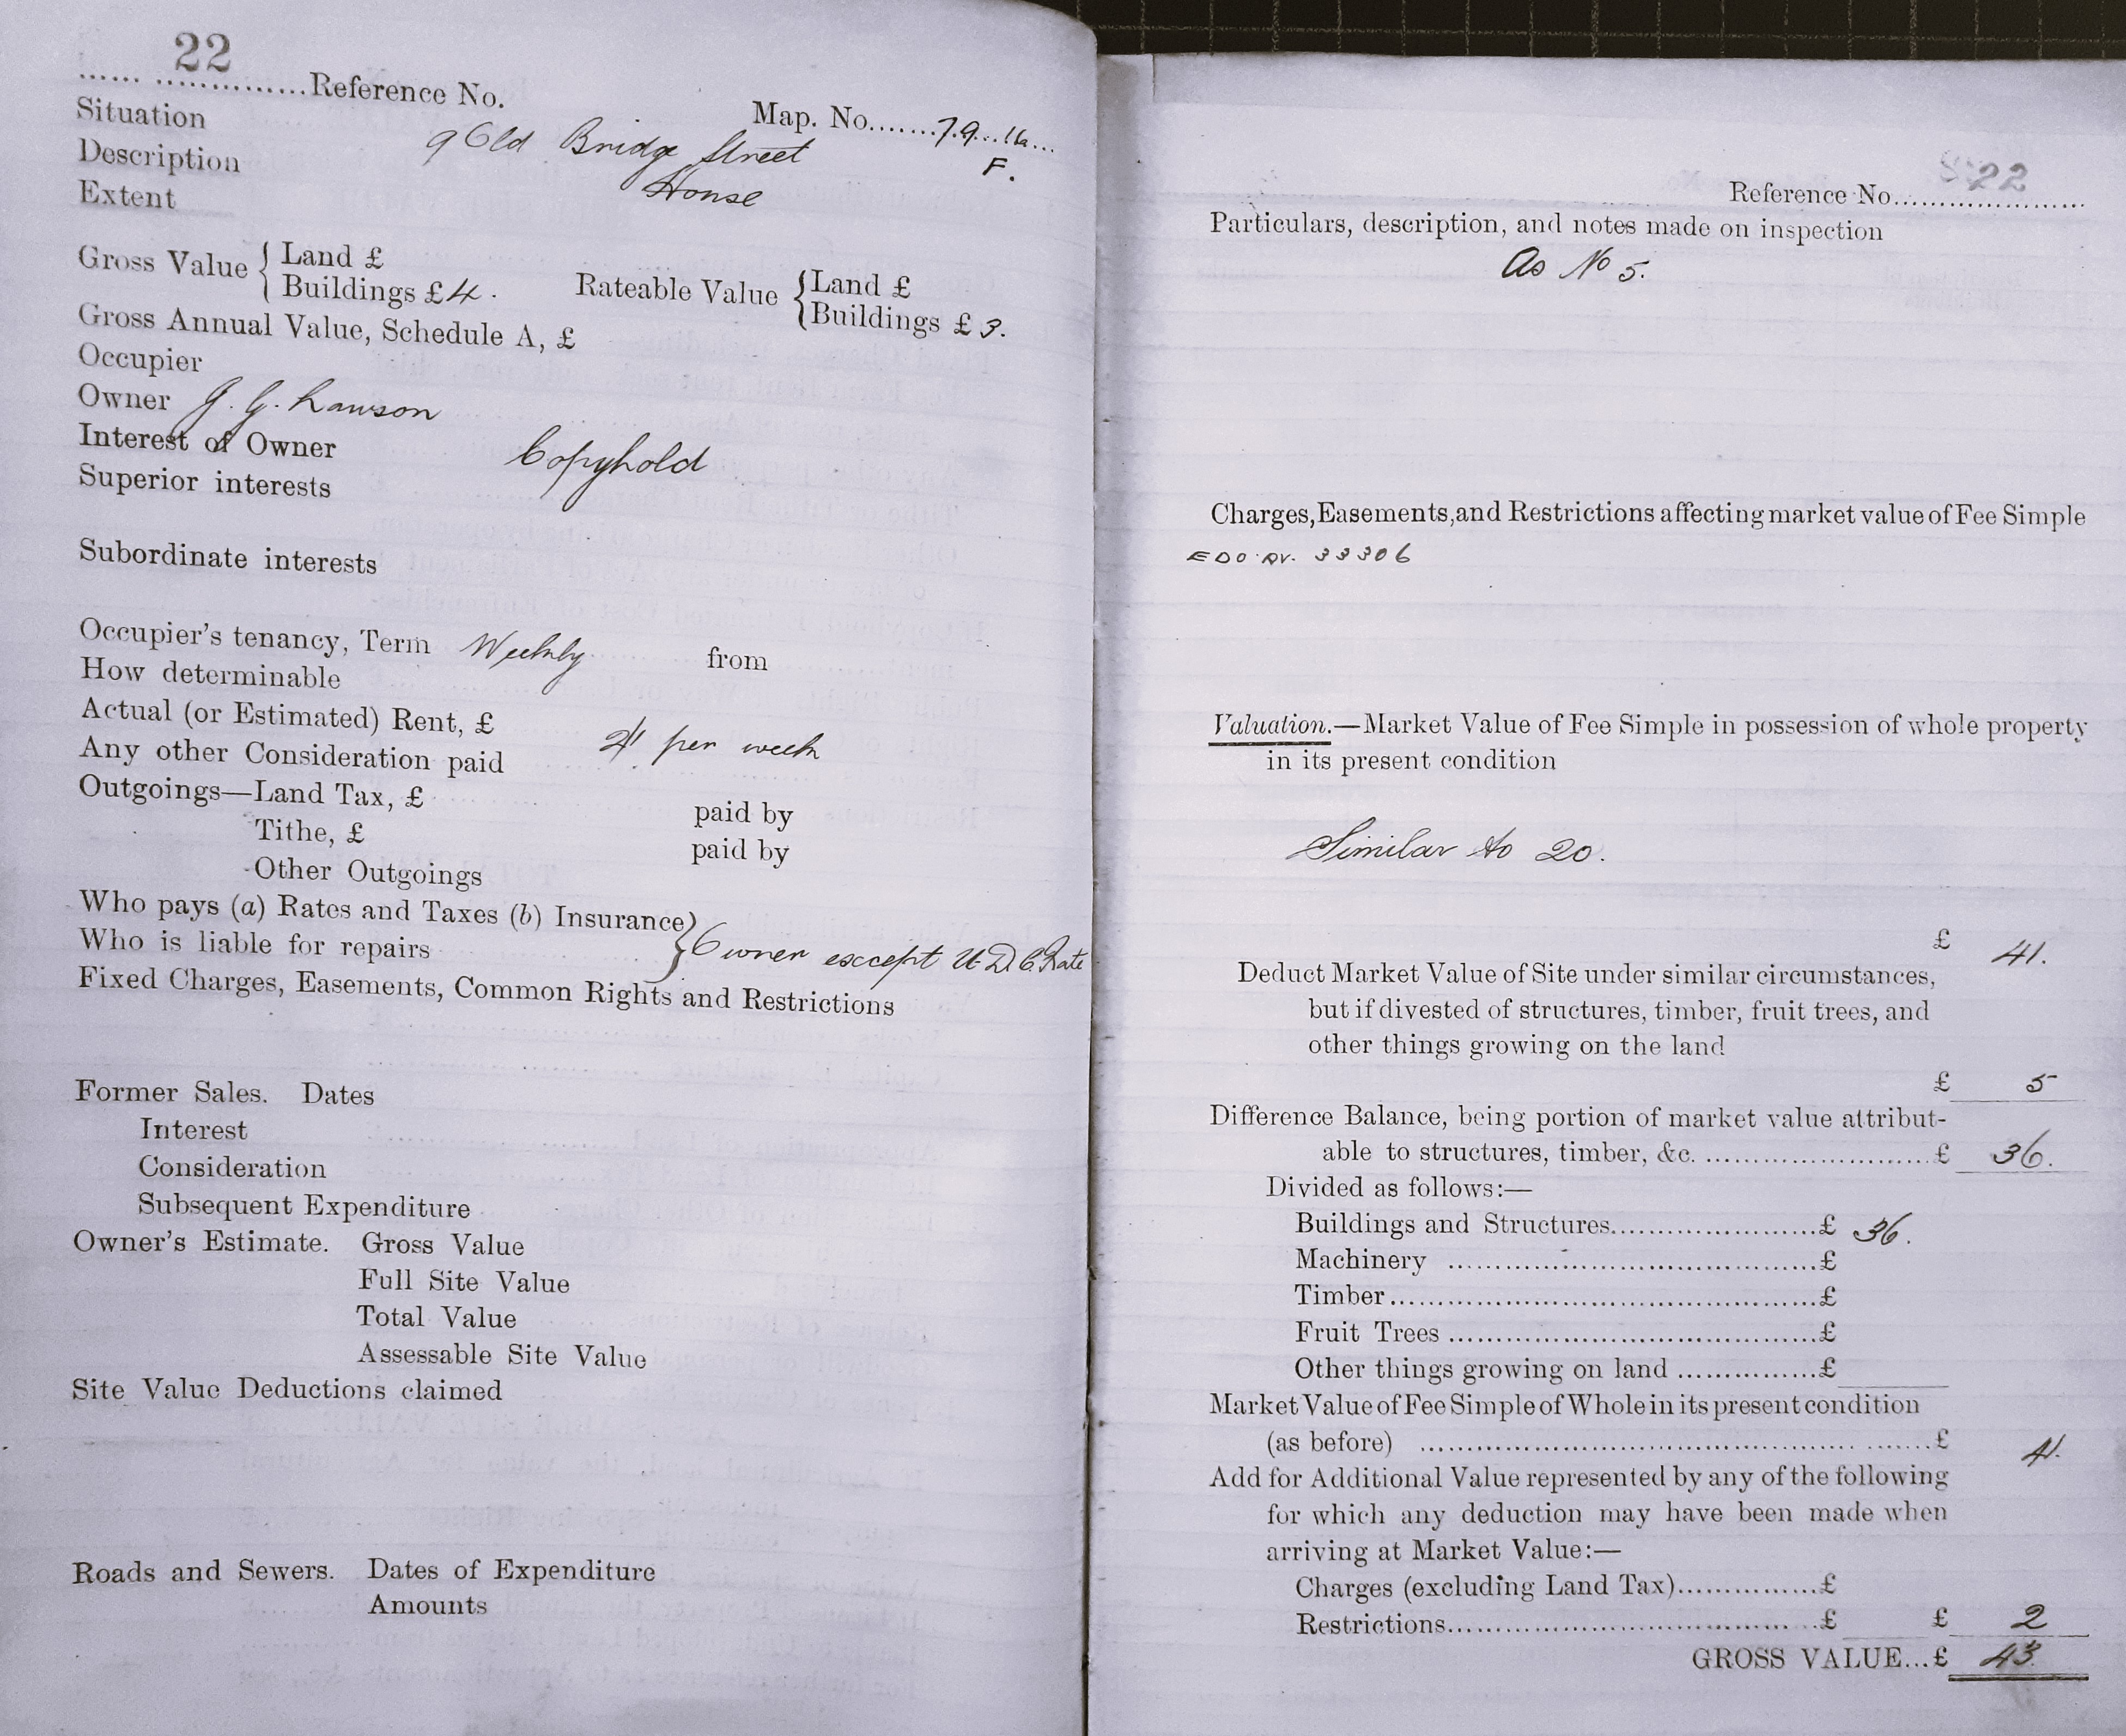 22
...... ..............Reference No.
Map. No.......79...16a...
Situation 9 Old Bridge Street
F.
Description House
Extent
Gross Value { Land £
Buildings £ 4.
Rateable Value { Land £
Buildings £ 3.
Gross Annual Value, Schedule A, £
Occupier
Owner J. G. Lawson
Interest of Owner Copyhold
Superior interests
Subordinate interests
Occupier's tenancy, Term Weekly from
How determinable
Actual (or Estimated) Rent, £ per week
Any other Consideration paid
Outgoings—Land Tax, £ paid by
Tithe, £ paid by
Other Outgoings
Who pays (a) Rates and Taxes (b) Insurance }
Who is liable for repairs } Owner except U D C Rate
Fixed Charges, Easements, Common Rights and Restrictions
Former Sales. Dates
Interest
Consideration
Subsequent Expenditure
Owner's Estimate. Gross Value
Full Site Value
Total Value
Assessable Site Value
Site Value Deductions claimed
Roads and Sewers. Dates of Expenditure
Amounts
Reference No. 22
Particulars, description, and notes made on inspection
As No 5.
Charges, Easements, and Restrictions affecting market value of Fee Simple
33306
Valuation.—Market Value of Fee Simple in possession of whole property
in its present condition
Similar to 20.
£ 41.
Deduct Market Value of Site under similar circumstances,
but if divested of structures, timber, fruit trees, and
other things growing on the land
£ 5
Difference Balance, being portion of market value attribut-
able to structures, timber, &c. ........................£ 36.
Divided as follows:—
Buildings and Structures......................£ 36.
Machinery .......................................£
Timber.............................................£
Fruit Trees .......................................£
Other things growing on land ...............£
Market Value of Fee Simple of Whole in its present condition
(as before) ..............................................£ 41.
Add for Additional Value represented by any of the following
for which any deduction may have been made when
arriving at Market Value:—
Charges (excluding Land Tax)...............£
Restrictions.......................................£ £ 2
GROSS VALUE...£ 43.